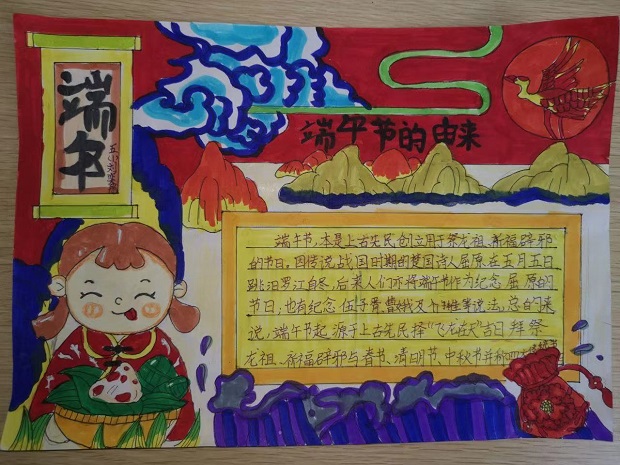 端午
端午节的由来
端午节,本是上古先民创立用于祭龙祖、祈福辟邪
的节日。因传说战国时期的楚国诗人屈原在五月五日
跳汨罗江自尽,后来人们亦将端午节作为纪念屈原的
节日,也有纪念伍子胥、曹娥及介子推等说法。总的来
说,端午节起源于上古先民择"飞龙在天"吉日拜祭
龙祖、祈福辟邪与春节、清明节、中秋节并称四大